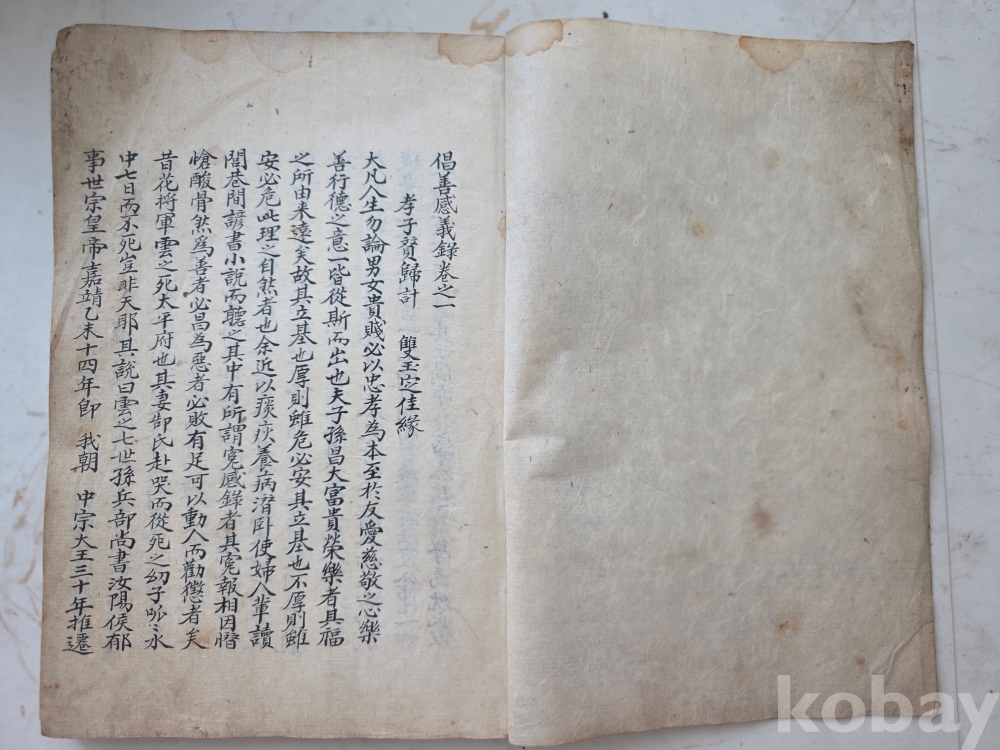 倡善感義錄卷之一
孝子賛歸計 雙玉定佳緣
大凡人生勿論男女貴賤必以忠孝為本至於友愛慈敬之心樂
善行德之意一皆從斯而出也夫子孫昌大富貴榮樂者其福
之所由来遠矣故其立基也厚則雖危必安其立基也不厚則雖
安必危此理之自然者也余近以痰痰養病潛卧使婦人輩讀
閭巷間諺書小說而聽之其中有所謂寃感錄者其寃報相因憯
愴酸骨然爲善者必昌為惡者必敗有足可以動人而勸懲者矣
昔花将軍雲之死太平府也其妻郜氏赴哭而從死之幼子呱〻水
中七日而不死豈非天耶其說曰雲之七世孫兵部尚書汝陽侯郁
事世宗皇帝嘉靖乙未十四年卽 我朝 中宗大王三十年推遷
kobay